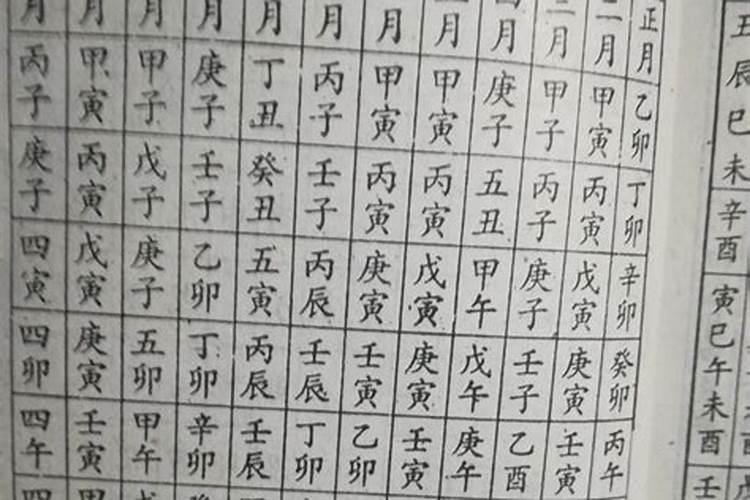 丑辰巳未
辛酉
寅巳午未酉
正月 乙卯 丁卯 辛卯 癸卯 丙午
二月 甲寅 丙寅 戊寅 庚寅 壬寅
月 甲子 丙子 庚子 壬子 乙酉
月 庚子 五丑 甲午 戊午 庚午
月 甲寅 丙寅 戊寅 庚寅 壬寅
月 甲寅 丙寅 庚寅 壬寅 乙卯
月 丙子 壬子 丙辰 壬辰 丁卯
月 丁丑 癸丑 五寅 丙辰 壬辰
月 庚子 壬子 乙卯 丁卯 辛卯
月 甲子 戊子 庚子 五卯 甲午
月 甲寅 丙寅 戊寅 庚寅 壬寅
月 丙子 庚子 四寅 四卯 四午